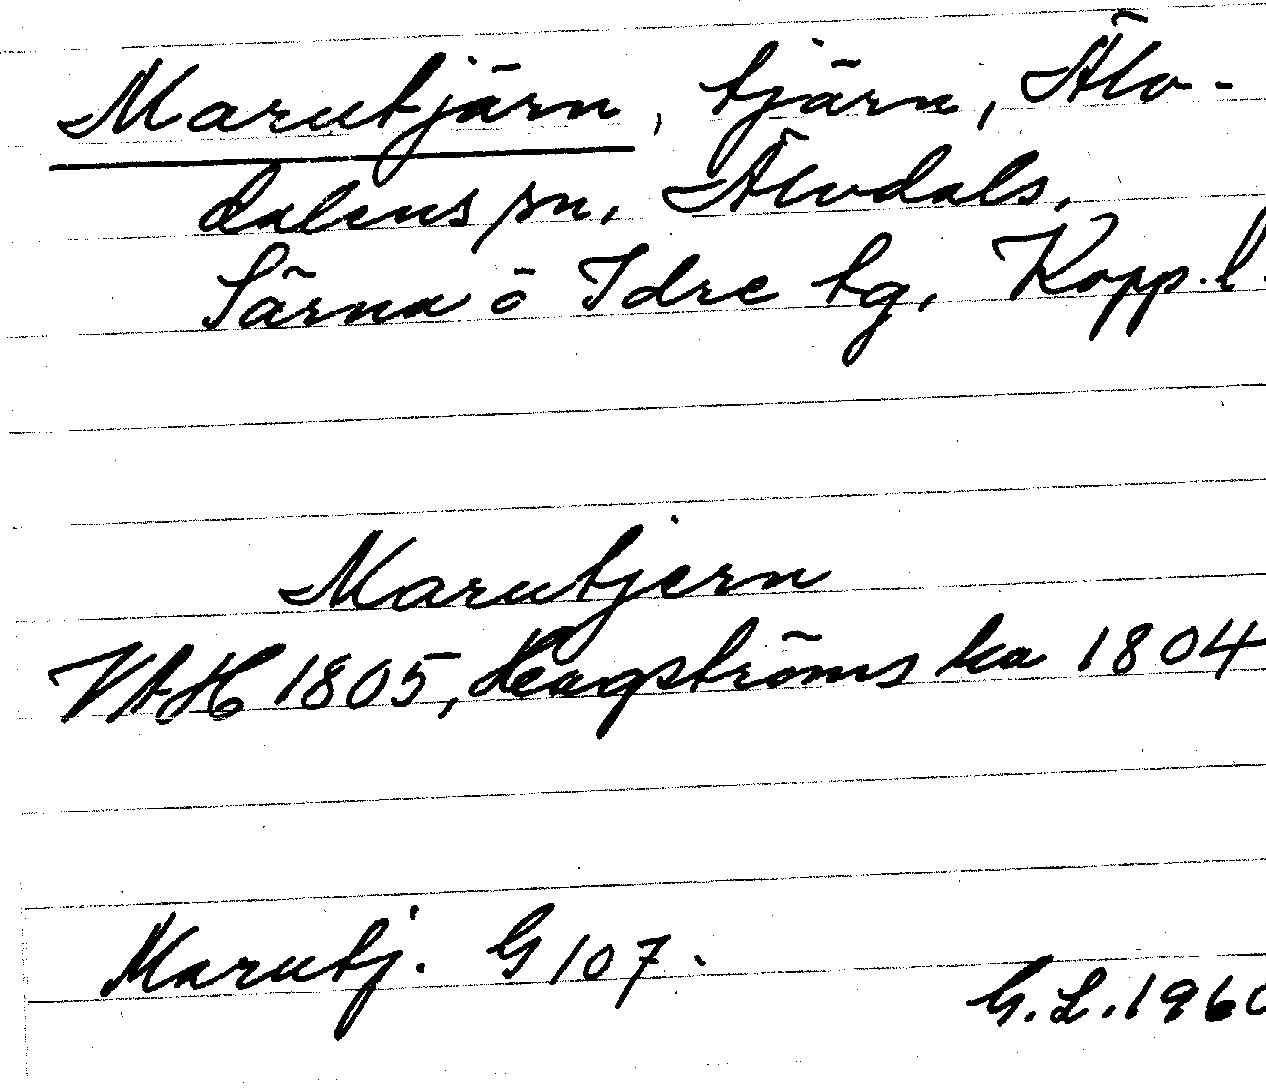 Marutjärn, tjärn, Älv-
dalens sn, Älvdals,
Särna o Idre tg, Kopp. l.
Marutjern
VAH 1805, Hagströms ka 1804
Marutj. G 107.
G. L. 1960